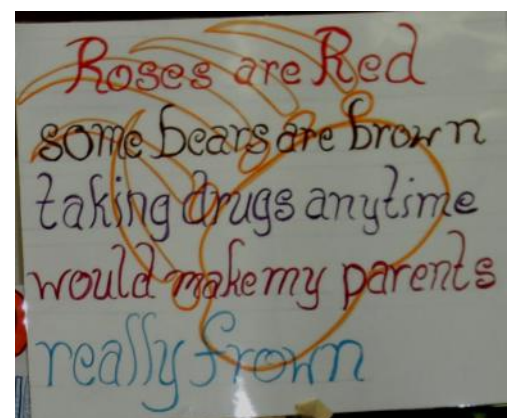 Roses are Red
some bears are brown
taking drugs anytime
would make my parents
really frown